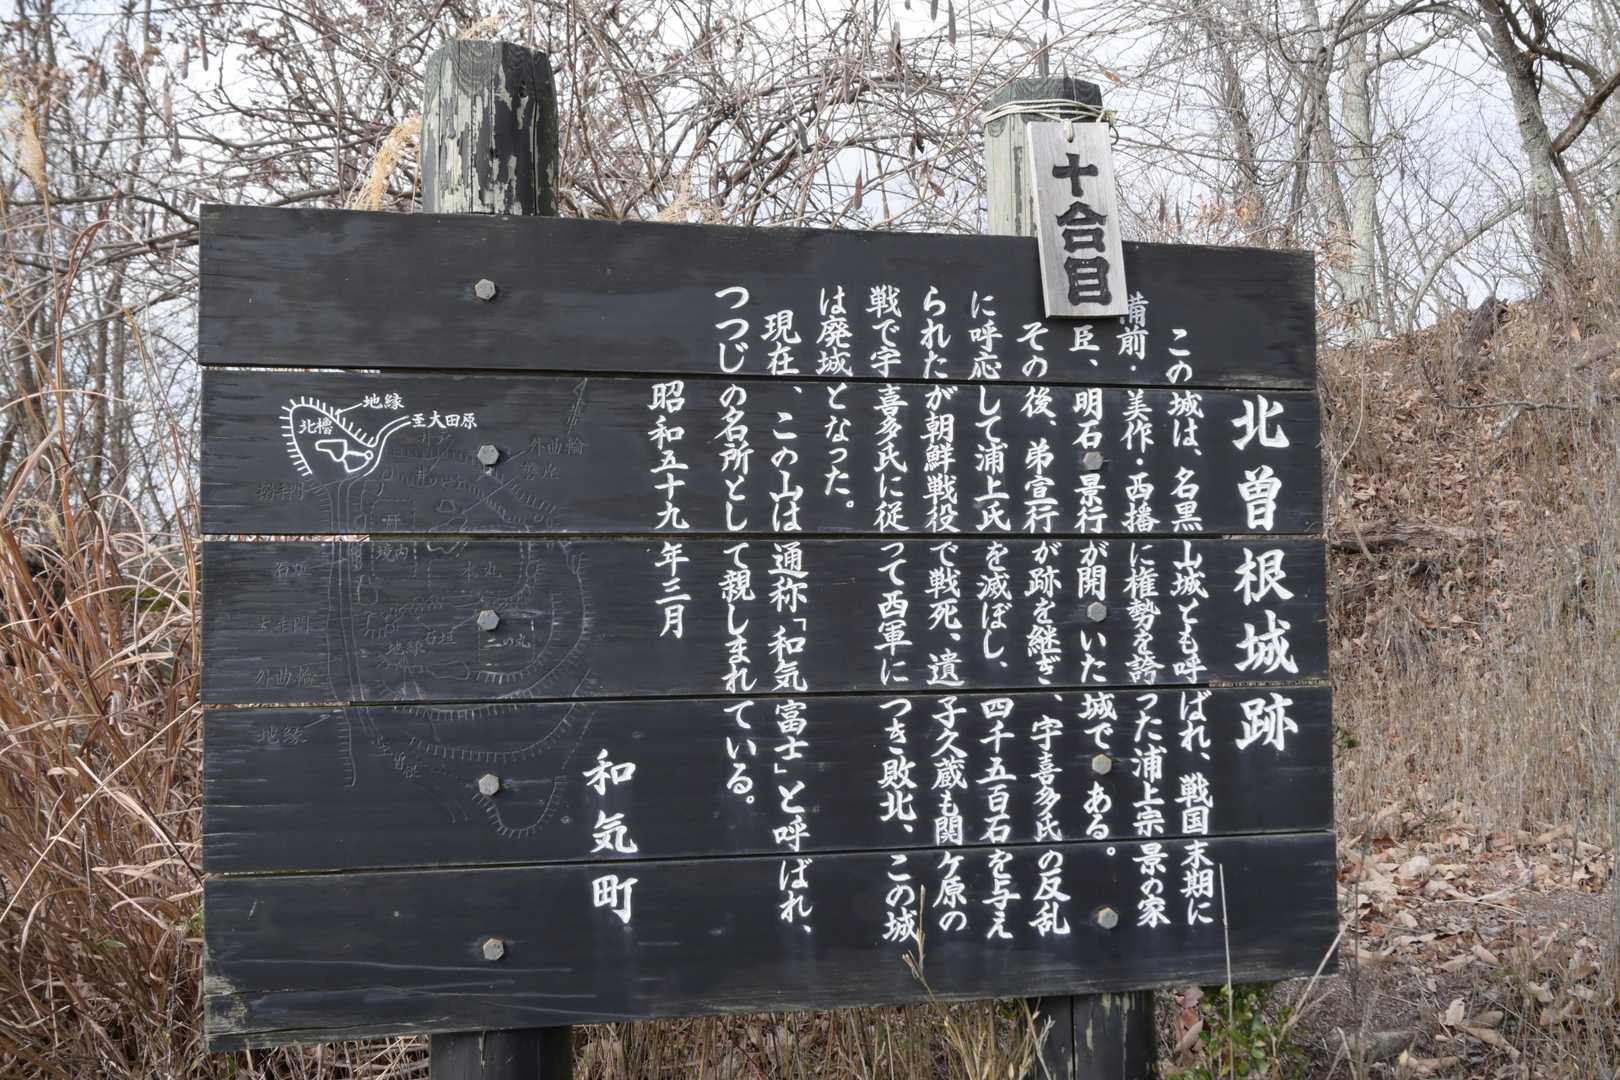 十合目
北曽根城跡
この城は、名黒山城とも呼ばれ、戦国末期に
備前・美作・西播に権勢を誇った浦上宗景の家
臣、明石景行が開いた城である。
その後、弟宣行が跡を継ぎ、宇喜多氏の反乱
に呼応して浦上氏を滅ぼし、四千五百石を与え
られたが朝鮮戦役で戦死、遺子久蔵も関ケ原の
戦で宇喜多氏に従って西軍につき敗北、この城
は廃城となった。
現在、この山は通称「和気富士」と呼ばれ、
つつじの名所として親しまれている。
昭和五十九年三月
和気町
地縁
至大田原
北櫓
外曲輪
井戸
本丸
二の丸
石垣
地縁
境内
石垣
大手門
外曲輪
地縁